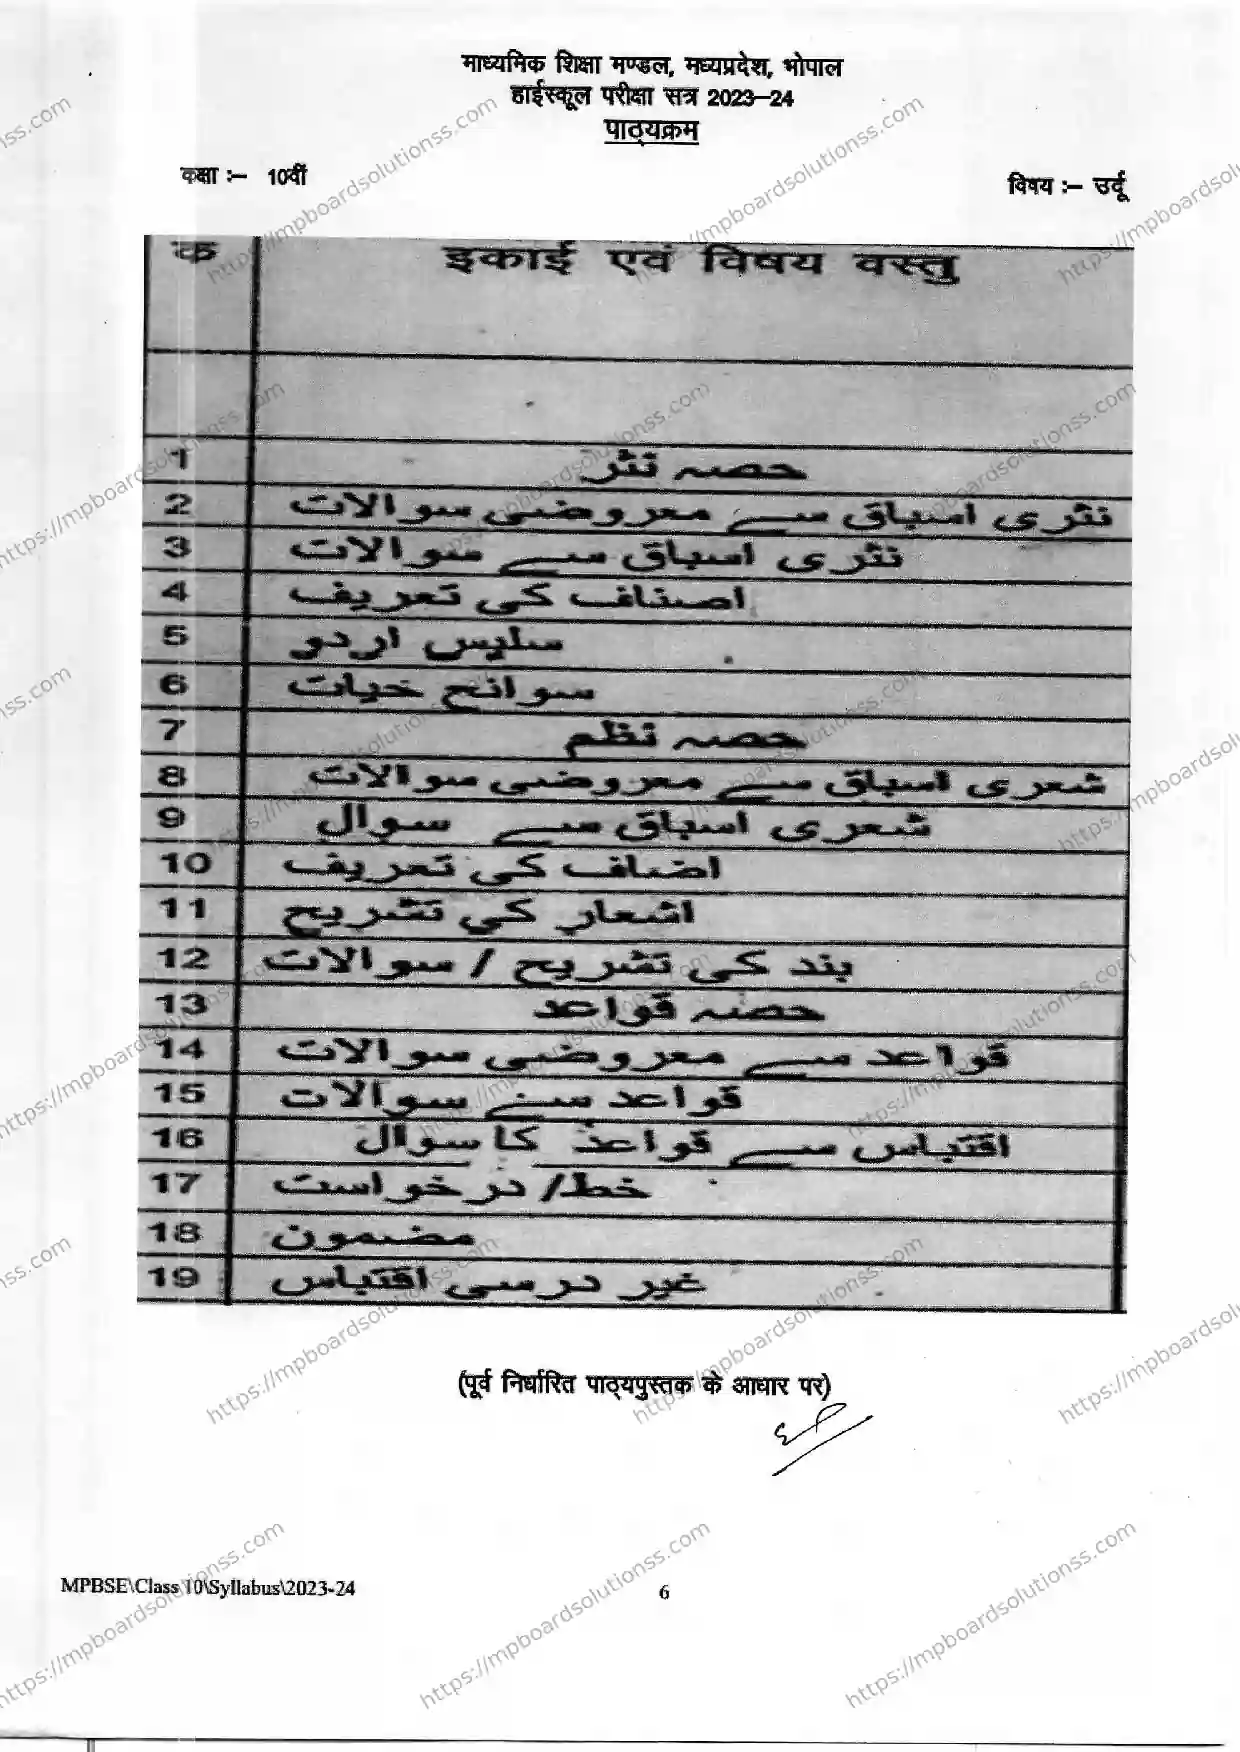 माध्यमिक शिक्षा मण्डल, मध्यप्रदेश, भोपाल
हाईस्कूल परीक्षा सत्र 2023–24
पाठ्यक्रम
कक्षा :– 10वीं
विषय :– उर्दू
क इकाई एवं विषय वस्तु
1 حصہ نثر
2 نثری اسباق سے معروضی سوالات
3 نثری اسباق سے سوالات
4 اصناف کی تعریف
5 سلیس اردو
6 سوانح حیات
7 حصہ نظم
8 شعری اسباق سے معروضی سوالات
9 شعری اسباق سے سوال
10 اضناف کی تعریف
11 اشعار کی تشریح
12 بند کی تشریح / سوالات
13 حصہ قواعد
14 قواعد سے معروضی سوالات
15 قواعد سے سوالات
16 اقتباس سے قواعد کا سوال
17 خط/ درخواست
18 مضمون
19 غیر درسی اقتباس
(पूर्व निर्धारित पाठ्यपुस्तक के आधार पर)
MPBSE\Class 10\Syllabus\2023-24
6
https://mpboardsolutionss.com